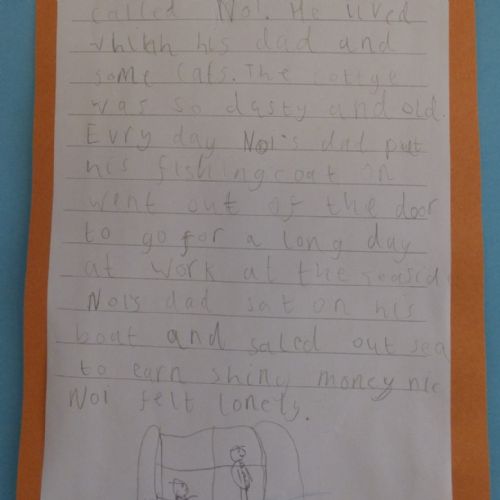 called Noi. He lived
whith his dad and
some cats. The cottge
was so dasty and old.
Evry day Noi's dad put
his fishing coat on
went out of the door
to go for a long day
at work at the seasid
Nois dad sat on his
boat and saled out sea
to earn shiny money
Noi felt lonely.